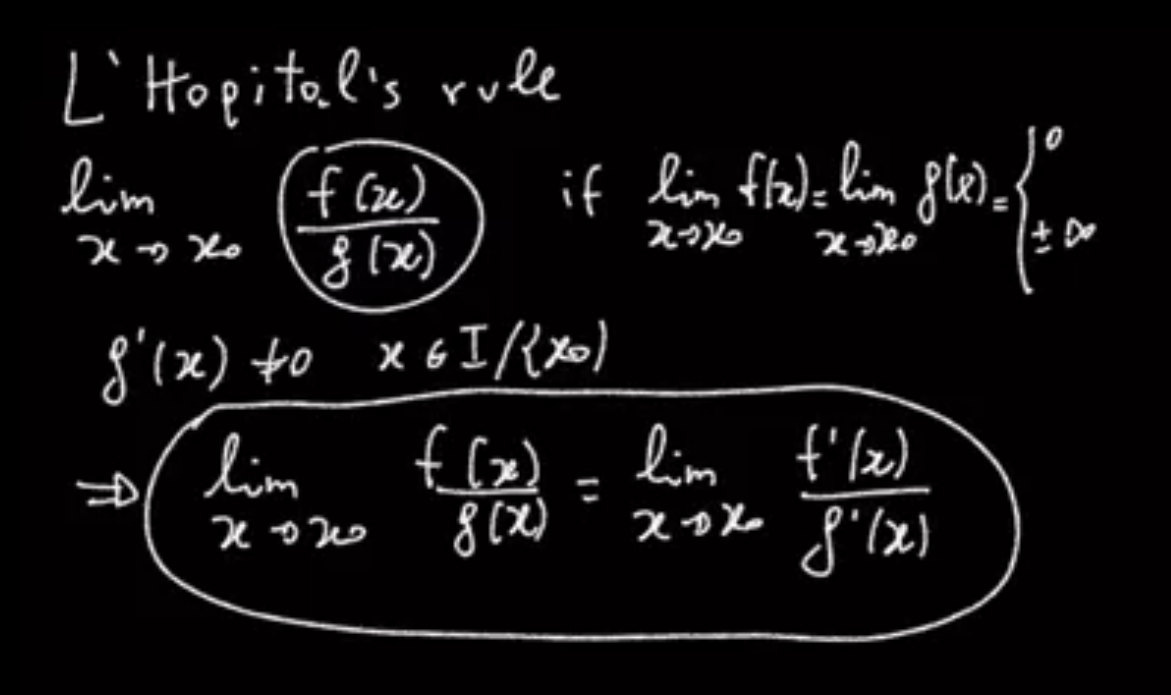 L'Hopital's rule
lim x→x₀ f(x)/g(x) if lim x→x₀ f(x) = lim x→x₀ g(x) = { 0 ± ∞
g'(x) ≠ 0 x ∈ I/{x₀)
⇒ lim x→x₀ f(x)/g(x) = lim x→x₀ f'(x)/g'(x)